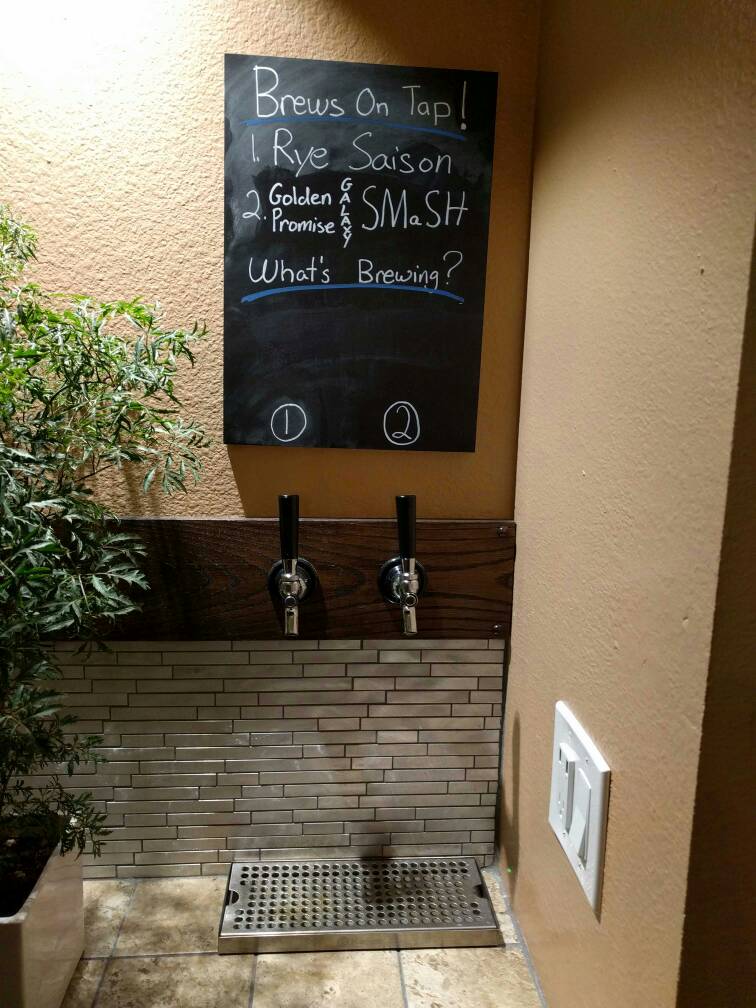 Brews On Tap!
1. Rye Saison
2. Golden Promise GALAXY SMaSH
What's Brewing?
1 2